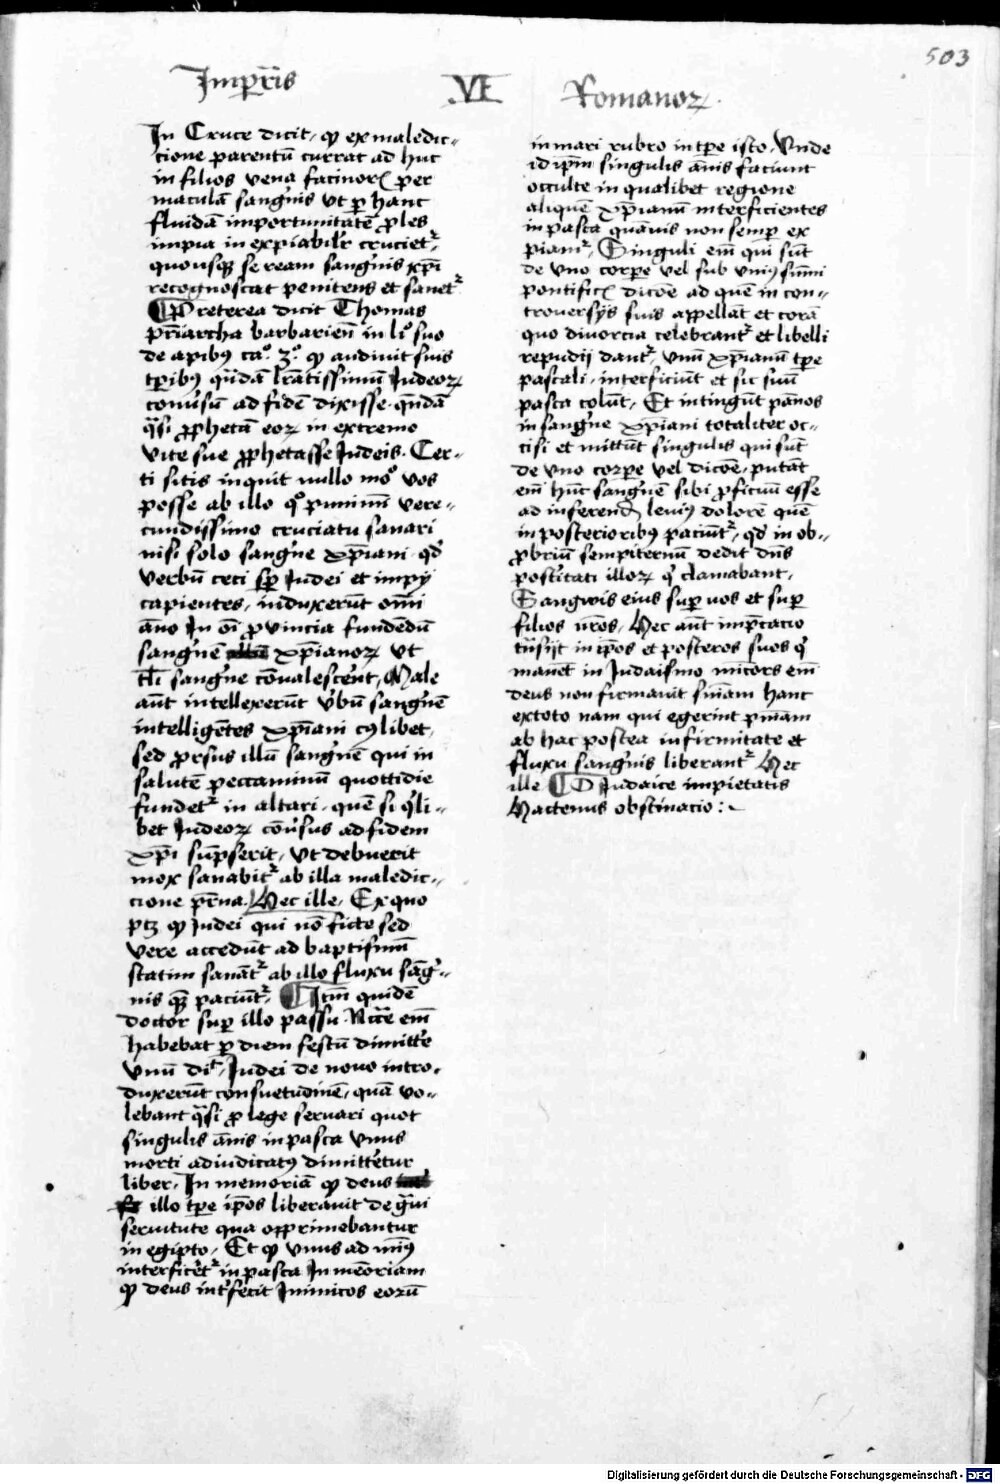 503
Imperatoris VI Romanoꝝ
In Cruce dicit, ꝙ ex maledic-
cione parentū currat ad huc
in filios vena facinoris per
maculā sangͥnis vt ꝑ hanc
fluidā importunitatē ꝓles
impia inexpiabilr̄ crucietᷣ
quousqꝫ se ream sangͥnis xp̄i
recognoscat penitens et sanetᷣ
Preterea dicit Thomas
pr̄iarcha barbarien̄ in li° suo
de apibꝰ ca°. 3°. ꝙ audiuit suis
tꝑibꝰ quēdā lr̄atissimū Iudeoꝝ
conuersum ad fidē dixisse. quendā
quasi ꝓphetam eoꝝ in extremo
vite sue ꝓphetasse Iudeis. Cer-
ti sitis inquit nullo mo° vos
posse ab illo quo punimini vere-
cundissimo cruciatu sanari
nisi solo sangͥne xp̄iani. qd̄
verbū ceci semper Iudei et impij
capientes, induxerūt omni
āno In oi ꝓuincia fundēdū
sangͥnē xp̄ianoꝝ vt
tali sangͥne cōualescerent, Male
aūt intellexerūt verbū sangͥnē
intelligētes xp̄iani cuiꝰlibet,
sed prorsus illū sangͥnē qui in
salutē peccaminū quottidie
fundetᷣ in altari. quē si quili-
bet Iudeoꝝ cōuersus ad fidem
xp̄i sūpserit, vt debuerit
mox sanabitᷣ ab illa maledic-
cione pr̄na. Hec ille, Ex quo
ptꝫ ꝙ Iudei qui nō ficte sed
vere accedūt ad baptismū
statim sanātᷣ ab illo fluxu sāgͥ-
nis quē paciūtᷣ. Itm̄ quidē
doctor super illo passu. Necesse em̄
habebat ꝑ diem festū dimittere
vnū dicit, Iudei de nouo intro-
duxerūt consuetudinē, quā vo-
lebant quasi ꝓ lege seruari quot
singulis ānis in pasca vnus
morti adiudicatꝰ dimitteretur
liber. In memoriā ꝙ deus
illo tꝑe ip̄os liberauit de graui
seruitute qua opprimebantur
in egipto, Et ꝙ vnus ad minꝰ
interficeretᷣ in pasca In memoriam
ꝙ deus interfecit Inimicos eorū
in mari rubro in tꝑe isto. Vnde
id ip̄m singulis ānis faciunt
occulte in qualibet regione
aliquē xp̄ianū interficientes
in pasca quāuis non semꝑ ex
piamᷣ. Singuli em̄ qui sūt
de vno corꝑe vel sub vniꝰ sūmi
pontificis dicōe ad quē in con-
trouersijs suis appellāt et corā
quo diuorcia celebrantᷣ et libelli
repudij dantᷣ, vnū xp̄ianū tꝑe
pascali interficiūt et sic suū
pasca colūt, Et intingūt pānos
in sangͥne xp̄iani totaliter oc-
cisi et mittūt singulis qui sūt
de vno corꝑe vel dicōe, putāt
em̄ hūc sangͥnē sibi ꝓficuū esse
ad inferend leuiꝰ dolorē quē
in posterioribꝰ paciūtᷣ, qd̄ in ob-
ꝓbriū sempiternū dedit dn̄s
posteritati illoꝝ qui clamabant,
Sangwis eius suꝑ nos et suꝑ
filios nr̄os, Hec aūt imp̄cacio
trāsijt in ip̄os et posteros suos qui
manēt in Iudaismo micors em̄
deus non firmauit sn̄iam hanc
ex toto nam qui egerint pn̄iam
ab hac postea infirmitate et
fluxu sangͥnis liberantᷣ Hec
ille De Iudaice impietatis
Hactenus obstinacio :~
Digitalisierung gefördert durch die Deutsche Forschungsgemeinschaft - DFG